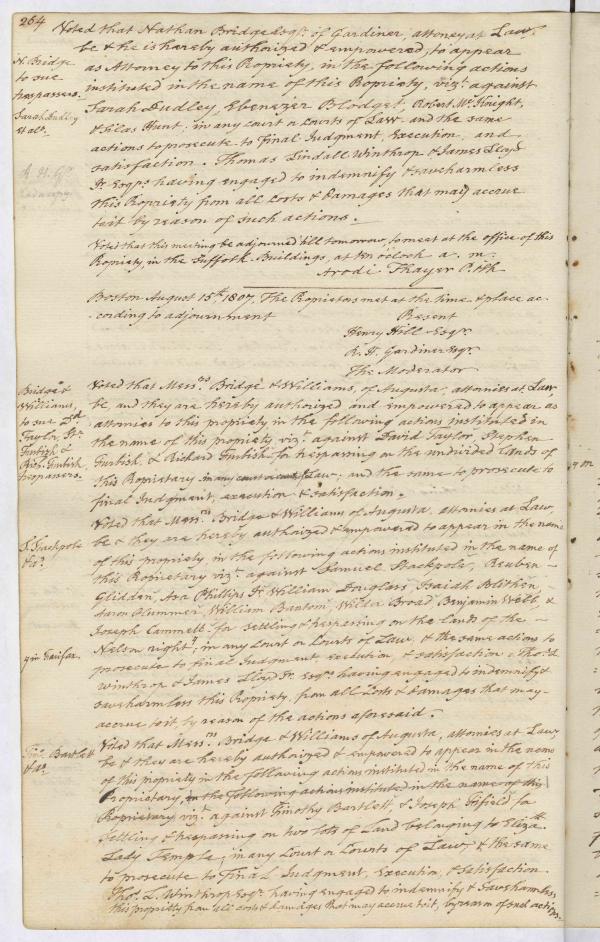 264
Voted that Nathan Bridge Esqr. of Gardiner, attorney at Law,
be & he is hereby authorized & empowered, to appear
as Attorney to this Propriety, in the following actions
instituted in the name of this Propriety, vizt. against
Sarah Dudley, Ebenezer Blodget, Robert McKnight,
& Silas Hunt, in any court or courts of Law and the same
actions to prosecute to final Judgment, execution, and
satisfaction. Thomas Lindall Winthrop & James Lloyd
Jr. Esqrs. having engaged to indemnify & save harmless
this Propriety from all Costs & damages that may accrue
to it by reason of such actions.
N. Bridge
to sue
trespassers.
Sarah Dudley
& als.
Voted that this meeting be adjourned till tomorrow, to meet at the office of this
Propriety, in the Suffolk Buildings, at ten oclock a. m.
Arodi Thayer P. Clk
Boston August 15th. 1807, The Proprietors met at the time & place ac-
-cording to adjournment
Present
Henry Hill Esqr.
R. H. Gardiner Esqr.
The Moderator
Bridge &
Williams,
to sue Dd.
Taylor, Sn.
Furbish &
Richd. Furbish
trespassers.
Voted that Messrs. Bridge & Williams, of Augusta, attornies at Law,
be, and they are hereby authorized and empowered to appear as
attornies to this propriety in the following actions instituted in
the name of this propriety viz. against David Taylor, Stephen
Furbish, & Richard Furbish for trespassing on the undivided lands of
this Proprietary in any court or courts of Law; and the same to prosecute to
final Judgment, execution & satisfaction.
S. Stackpole
& als.
Voted that Messrs. Bridge & Williams of Augusta, attornies at Law,
be & they are hereby authorized & empowered to appear in the name
of this propriety, in the following actions instituted in the name of
this Proprietary vizt. against Samuel Stackpole, Reuben
Glidden, Asa Phillips Jr. William Douglass, Isaiah Blithen,
Aaron Plummer, William Bantom, Willa Broad Benjamin Webb, &
Joseph Cammett for settling & trespassing on the lands of the
Nelson right, in any Court or Courts of Law, & the same actions to
prosecute to final Judgment, execution, & satisfaction. Thos. L.
Winthrop & James Lloyd Jr. Esqrs. having engaged to indemnify &
save harmless this Propriety, from all Costs & damages that may
accrue to it by reason of the actions aforesaid.
in Fairfax
Timo. Bartlett
& al.
Voted that Messrs. Bridge & Williams of Augusta, attornies at Law
be & they are hereby authorized & empowered to appear in the name
of this propriety in the following actions instituted in the name of this
Proprietary, in the following actions instituted in the name of this
Proprietary vizt. against Timothy Bartlett, & Joseph Fifield for
settling & trespassing on two lots of Land belonging to Elizah.
Lady Temple, in any Court or Courts of Law, & the same
to prosecute to final Judgment, Execution, & satisfaction.
Thos. L. Winthrop Esqr. having engaged to indemnify & save harmless
this propriety from all costs & damages that may accrue to it, by reason of such actions.